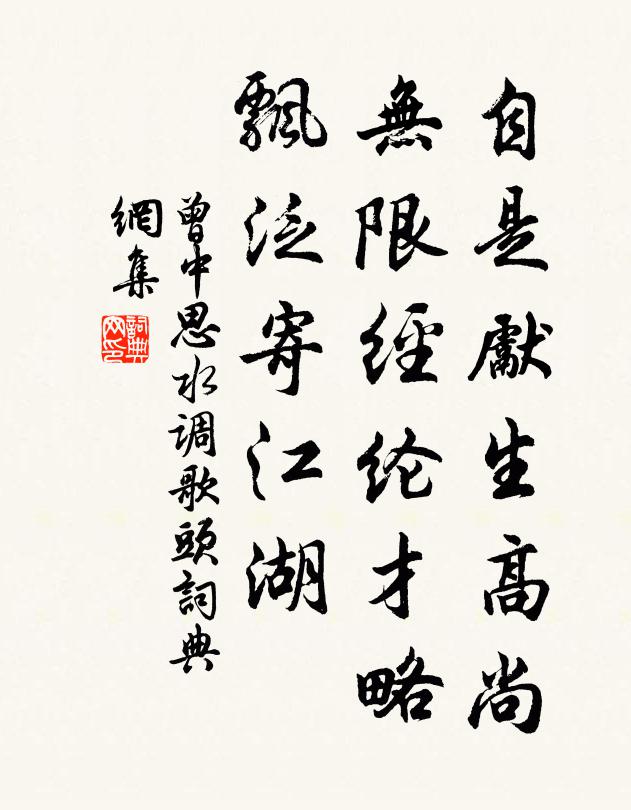 自是獻生高尚
無限經纶才略
飄泛寄江湖
曾中思水调歌頭詞典
網集
詞典
网印